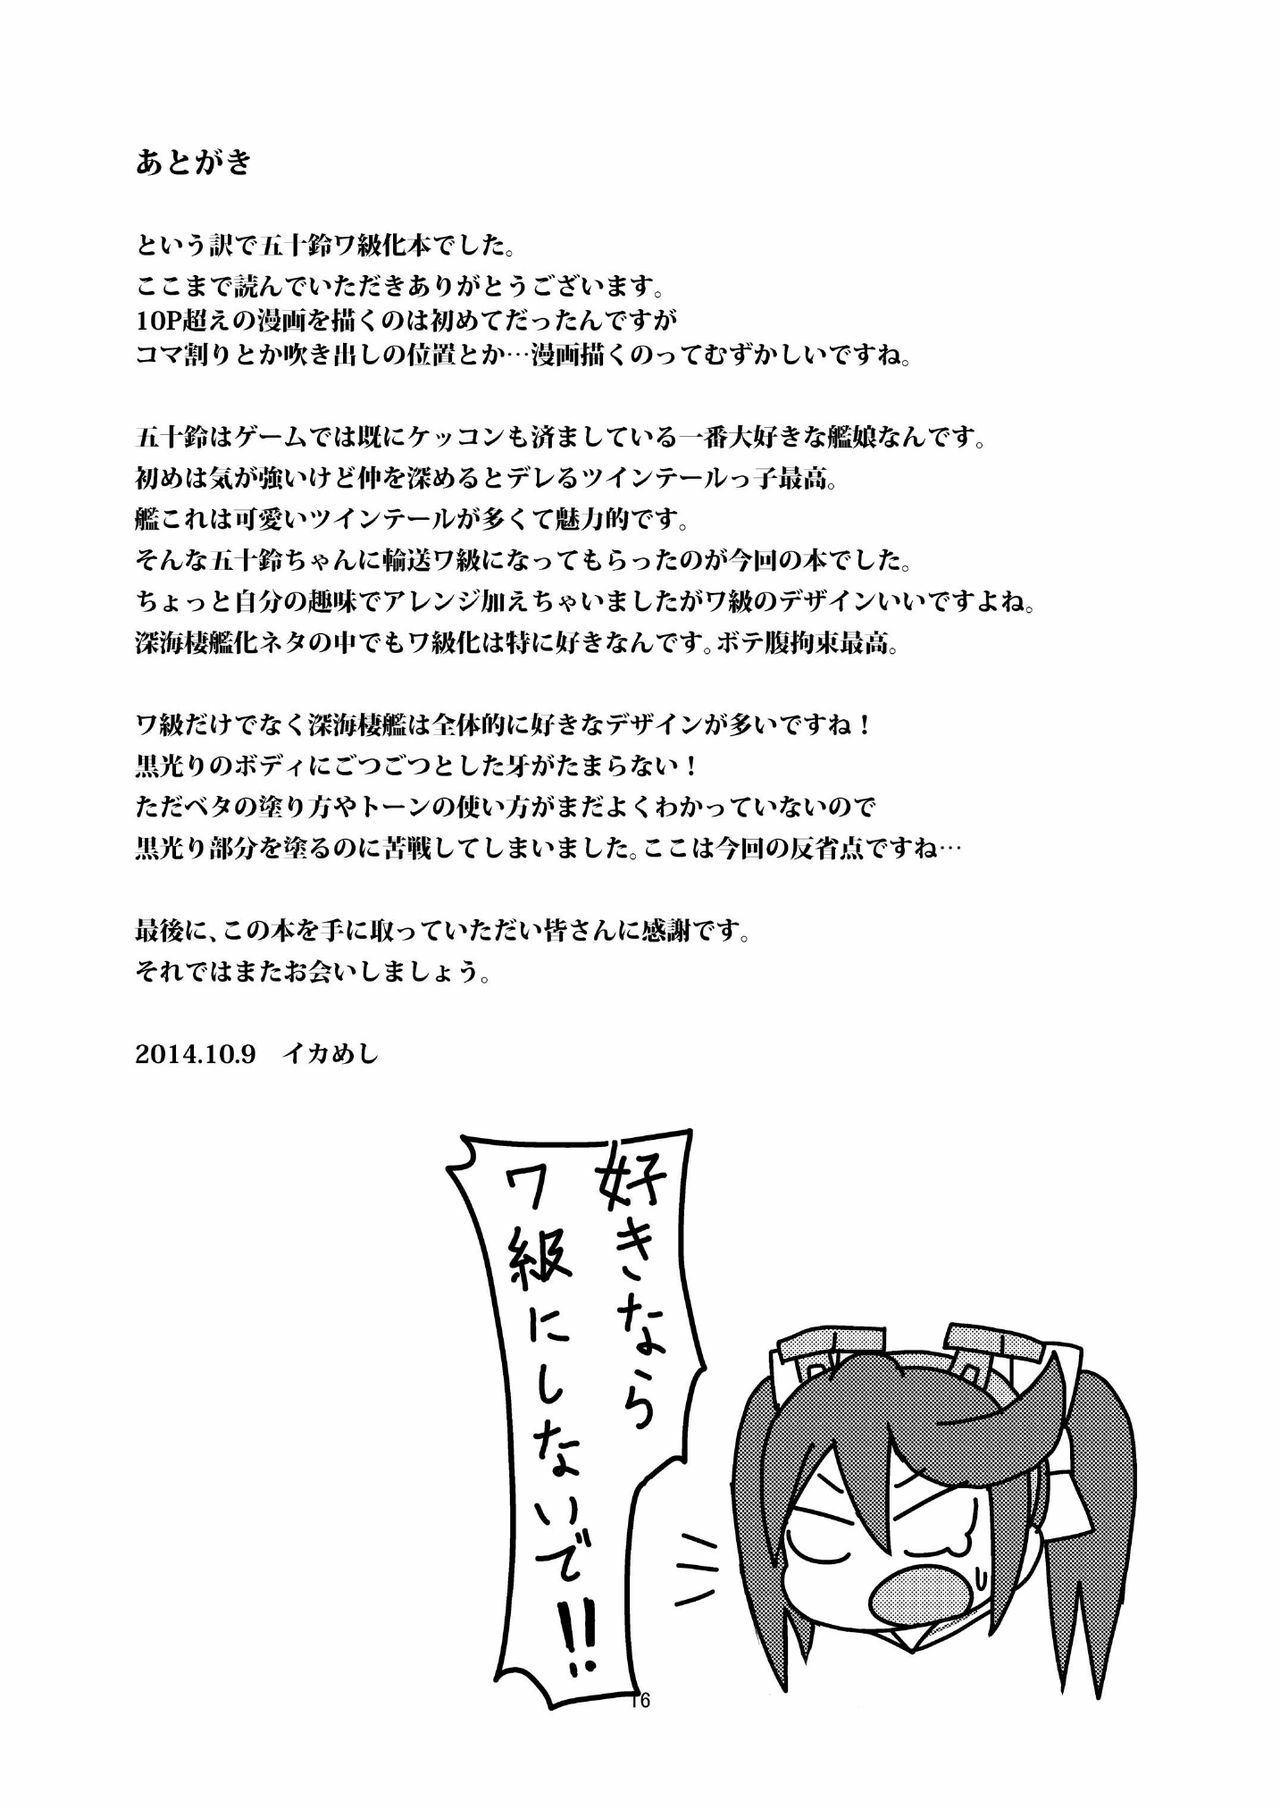 あとがき
という訳で五十鈴ワ級化本でした。
ここまで読んでいただきありがとうございます。
10P超えの漫画を描くのは初めてだったんですが
コマ割りとか吹き出しの位置とか…漫画描くのってむずかしいですね。
五十鈴はゲームでは既にケッコンも済ましている一番大好きな艦娘なんです。
初めは気が強いけど仲を深めるとデレるツインテールっ子最高。
艦これは可愛いツインテールが多くて魅力的です。
そんな五十鈴ちゃんに輸送ワ級になってもらったのが今回の本でした。
ちょっと自分の趣味でアレンジ加えちゃいましたがワ級のデザインいいですよね。
深海棲艦化ネタの中でもワ級化は特に好きなんです。ボテ腹拘束最高。
ワ級だけでなく深海棲艦は全体的に好きなデザインが多いですね！
黒光りのボディにごつごつとした牙がたまらない！
ただベタの塗り方やトーンの使い方がまだよくわかっていないので
黒光り部分を塗るのに苦戦してしまいました。ここは今回の反省点ですね…
最後に、この本を手に取っていただい皆さんに感謝です。
それではまたお会いしましょう。
2014.10.9　イカめし
好きなら
ワ級にしないで!!
16